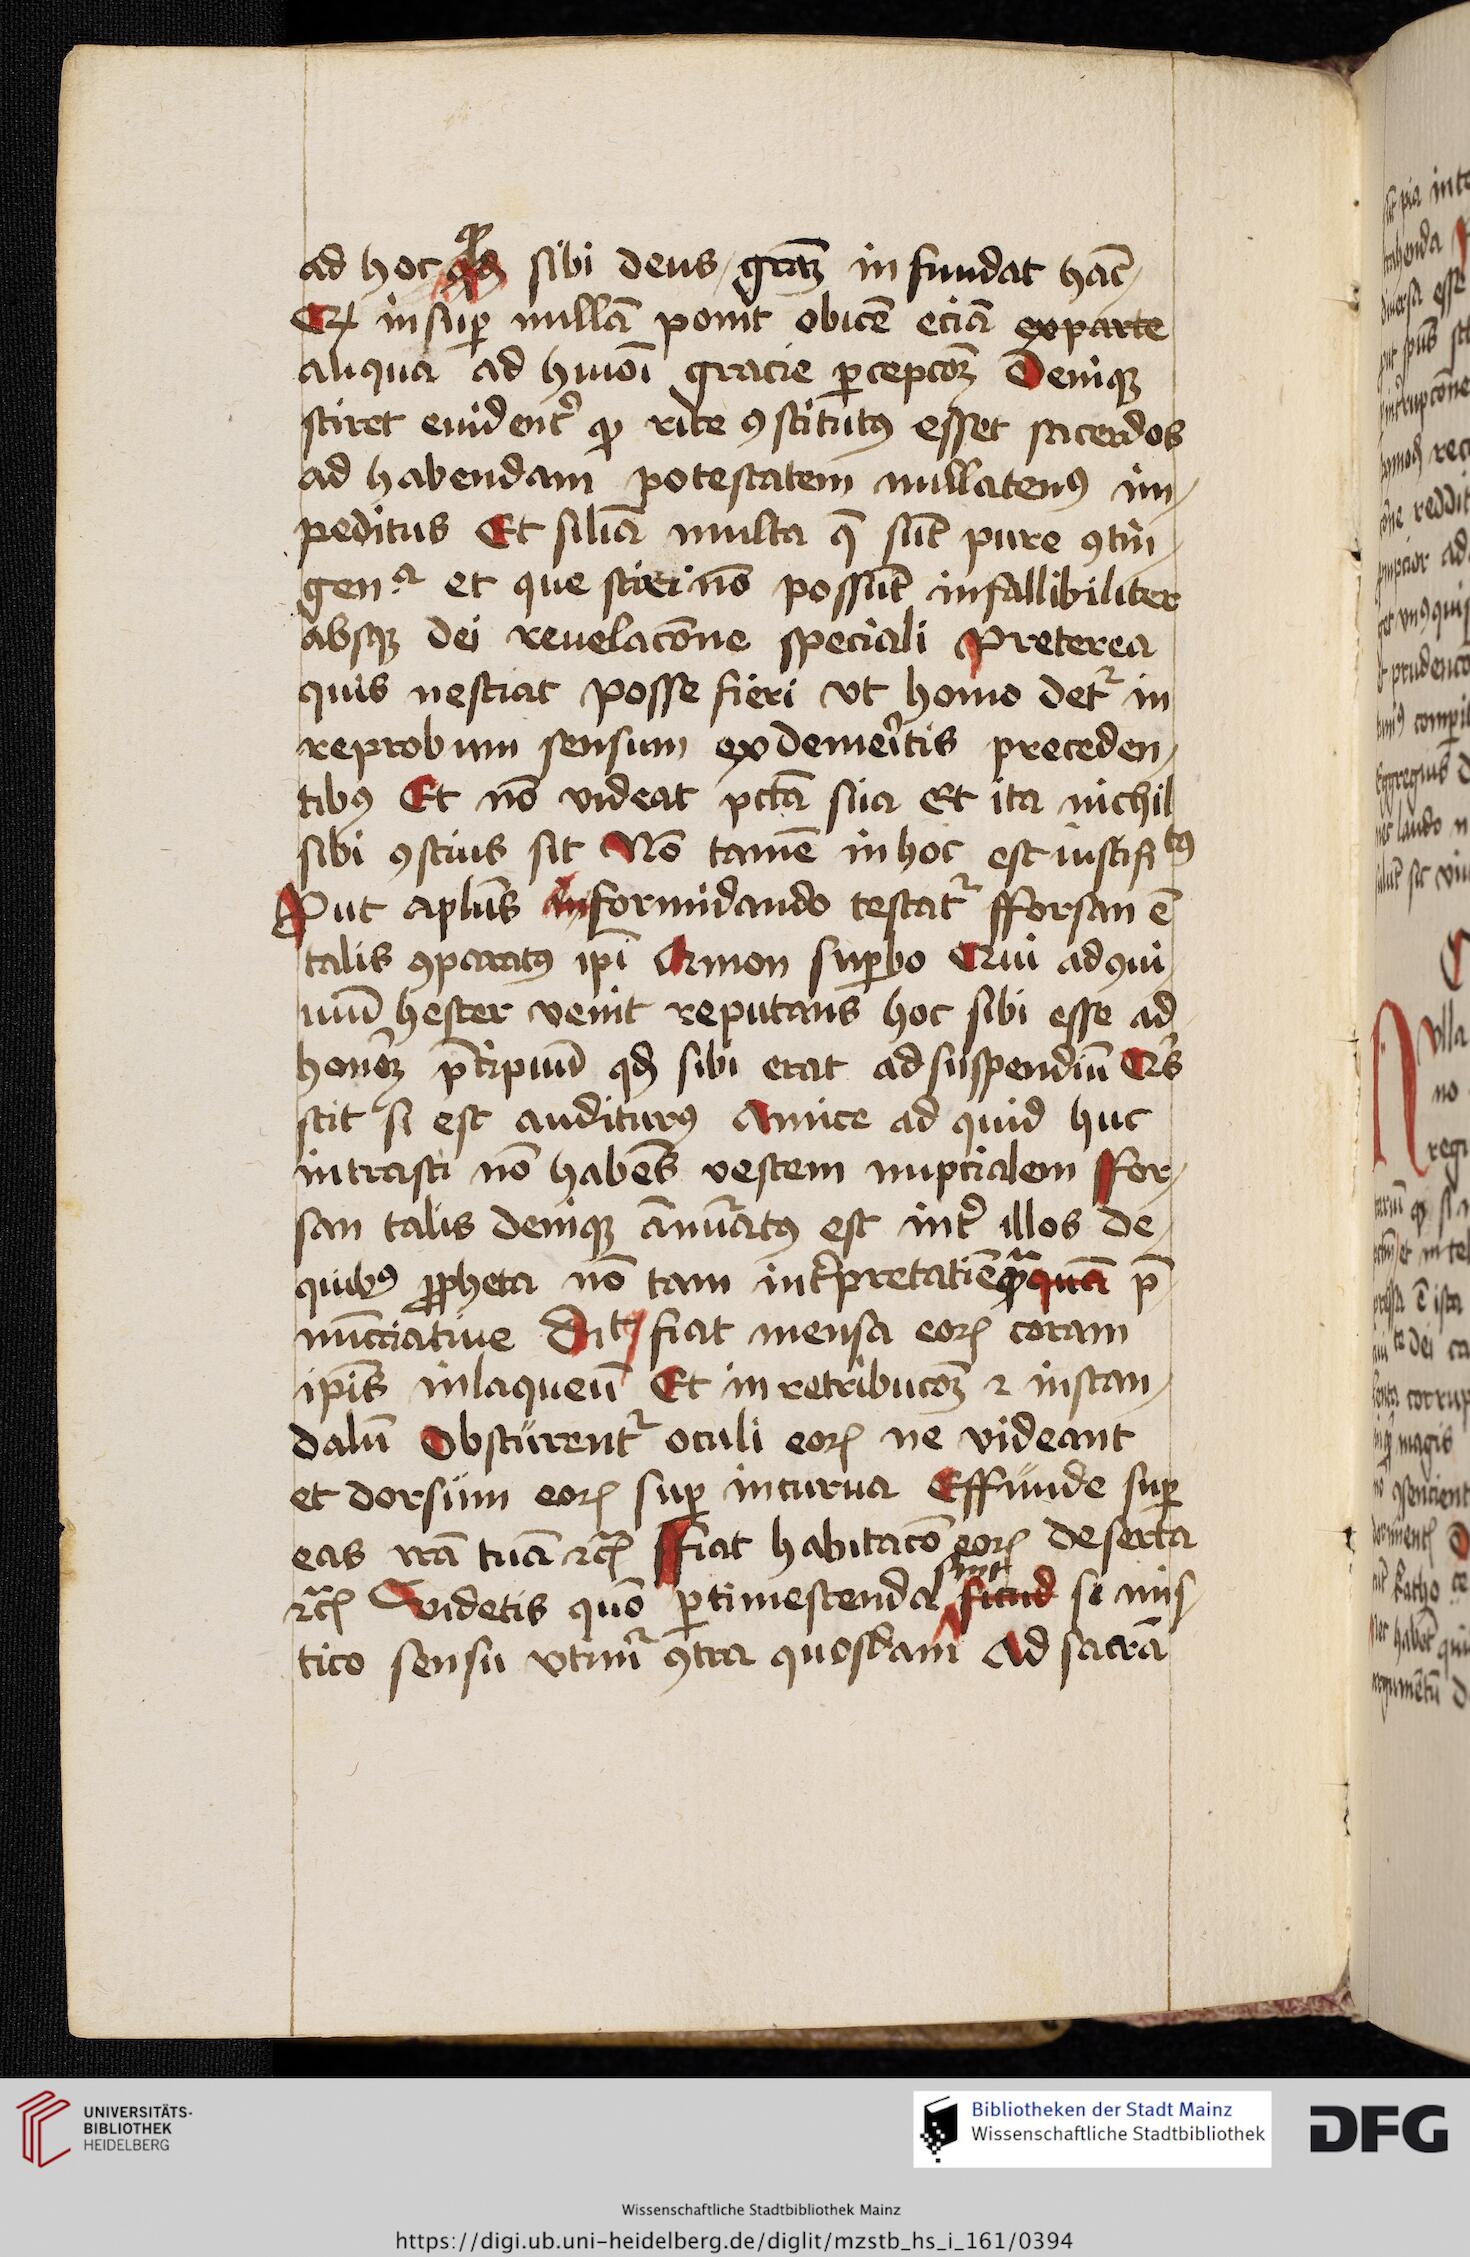 ad hoc qd qꝫ sibi deus gr̄aꝫ infundat hāc
Et insuꝑ nullā ponit obicē eciā ex parte
aliqua ad huiꝰmōi gracie ꝑcepcōꝫ Deniqꝫ
sciret euident̉ ꝙ rite ꝯstitutꝰ esset sacerdos
ad habendam potestatem nullatenꝰ im-
peditus Et silīa multa q̄ sūt pure ꝯtin-
gen.ᵃ et que sciri nō possūt infallibiliter
absqꝫ dei reuelacōne speciali Preterea
quis nesciat posse fieri vt homo det᷑ in
reprobum sensum ex demeritis preceden-
tibꝰ Et nō videat pctā sua Et ita nichil
sibi ꝯscius sit Nō tamē in hoc est iustifitꝰ
Put aplūs formidando testat᷑ fforsan ē
talis ꝯparatꝰ ipī Amon superbo Qui ad ꝯui-
uiū hester venit reputans hoc sibi esse ad
honorꝫ p̄cipuū qd sibi erat ad suspendiū Qͥs
scit si est auditurꝰ Amice ad quid huc
intrasti nō habēs vestem nupcialem ffor-
san talis deniqꝫ ānuatꝰ est int̉ illos de
quibꝰ ꝓpheta nō tam int̉pretatiē quā p̄
nūcciatiue Dīt fiat mensa eorꝝ coram
ipīs in laqueū Et in retribucōꝫ ⁊ in scan-
dalū Obscurent᷑ oculi eorꝝ ne videant
et dorsum eorꝝ suꝑ incurua Effunde suꝑ
eas irā tuā ⁊cꝝ ffiat habitacō eorꝝ deserta
⁊cꝝ Videtis quō ꝑtimescenda sunt si mis-
tico sensu vtim᷑ ꝯtra quosdam Ad sacrā
UNIVERSITÄTS-
BIBLIOTHEK
HEIDELBERG
Bibliotheken der Stadt Mainz
Wissenschaftliche Stadtbibliothek
DFG
Wissenschaftliche Stadtbibliothek Mainz
https://digi.ub.uni-heidelberg.de/diglit/mzstb_hs_i_161/0394